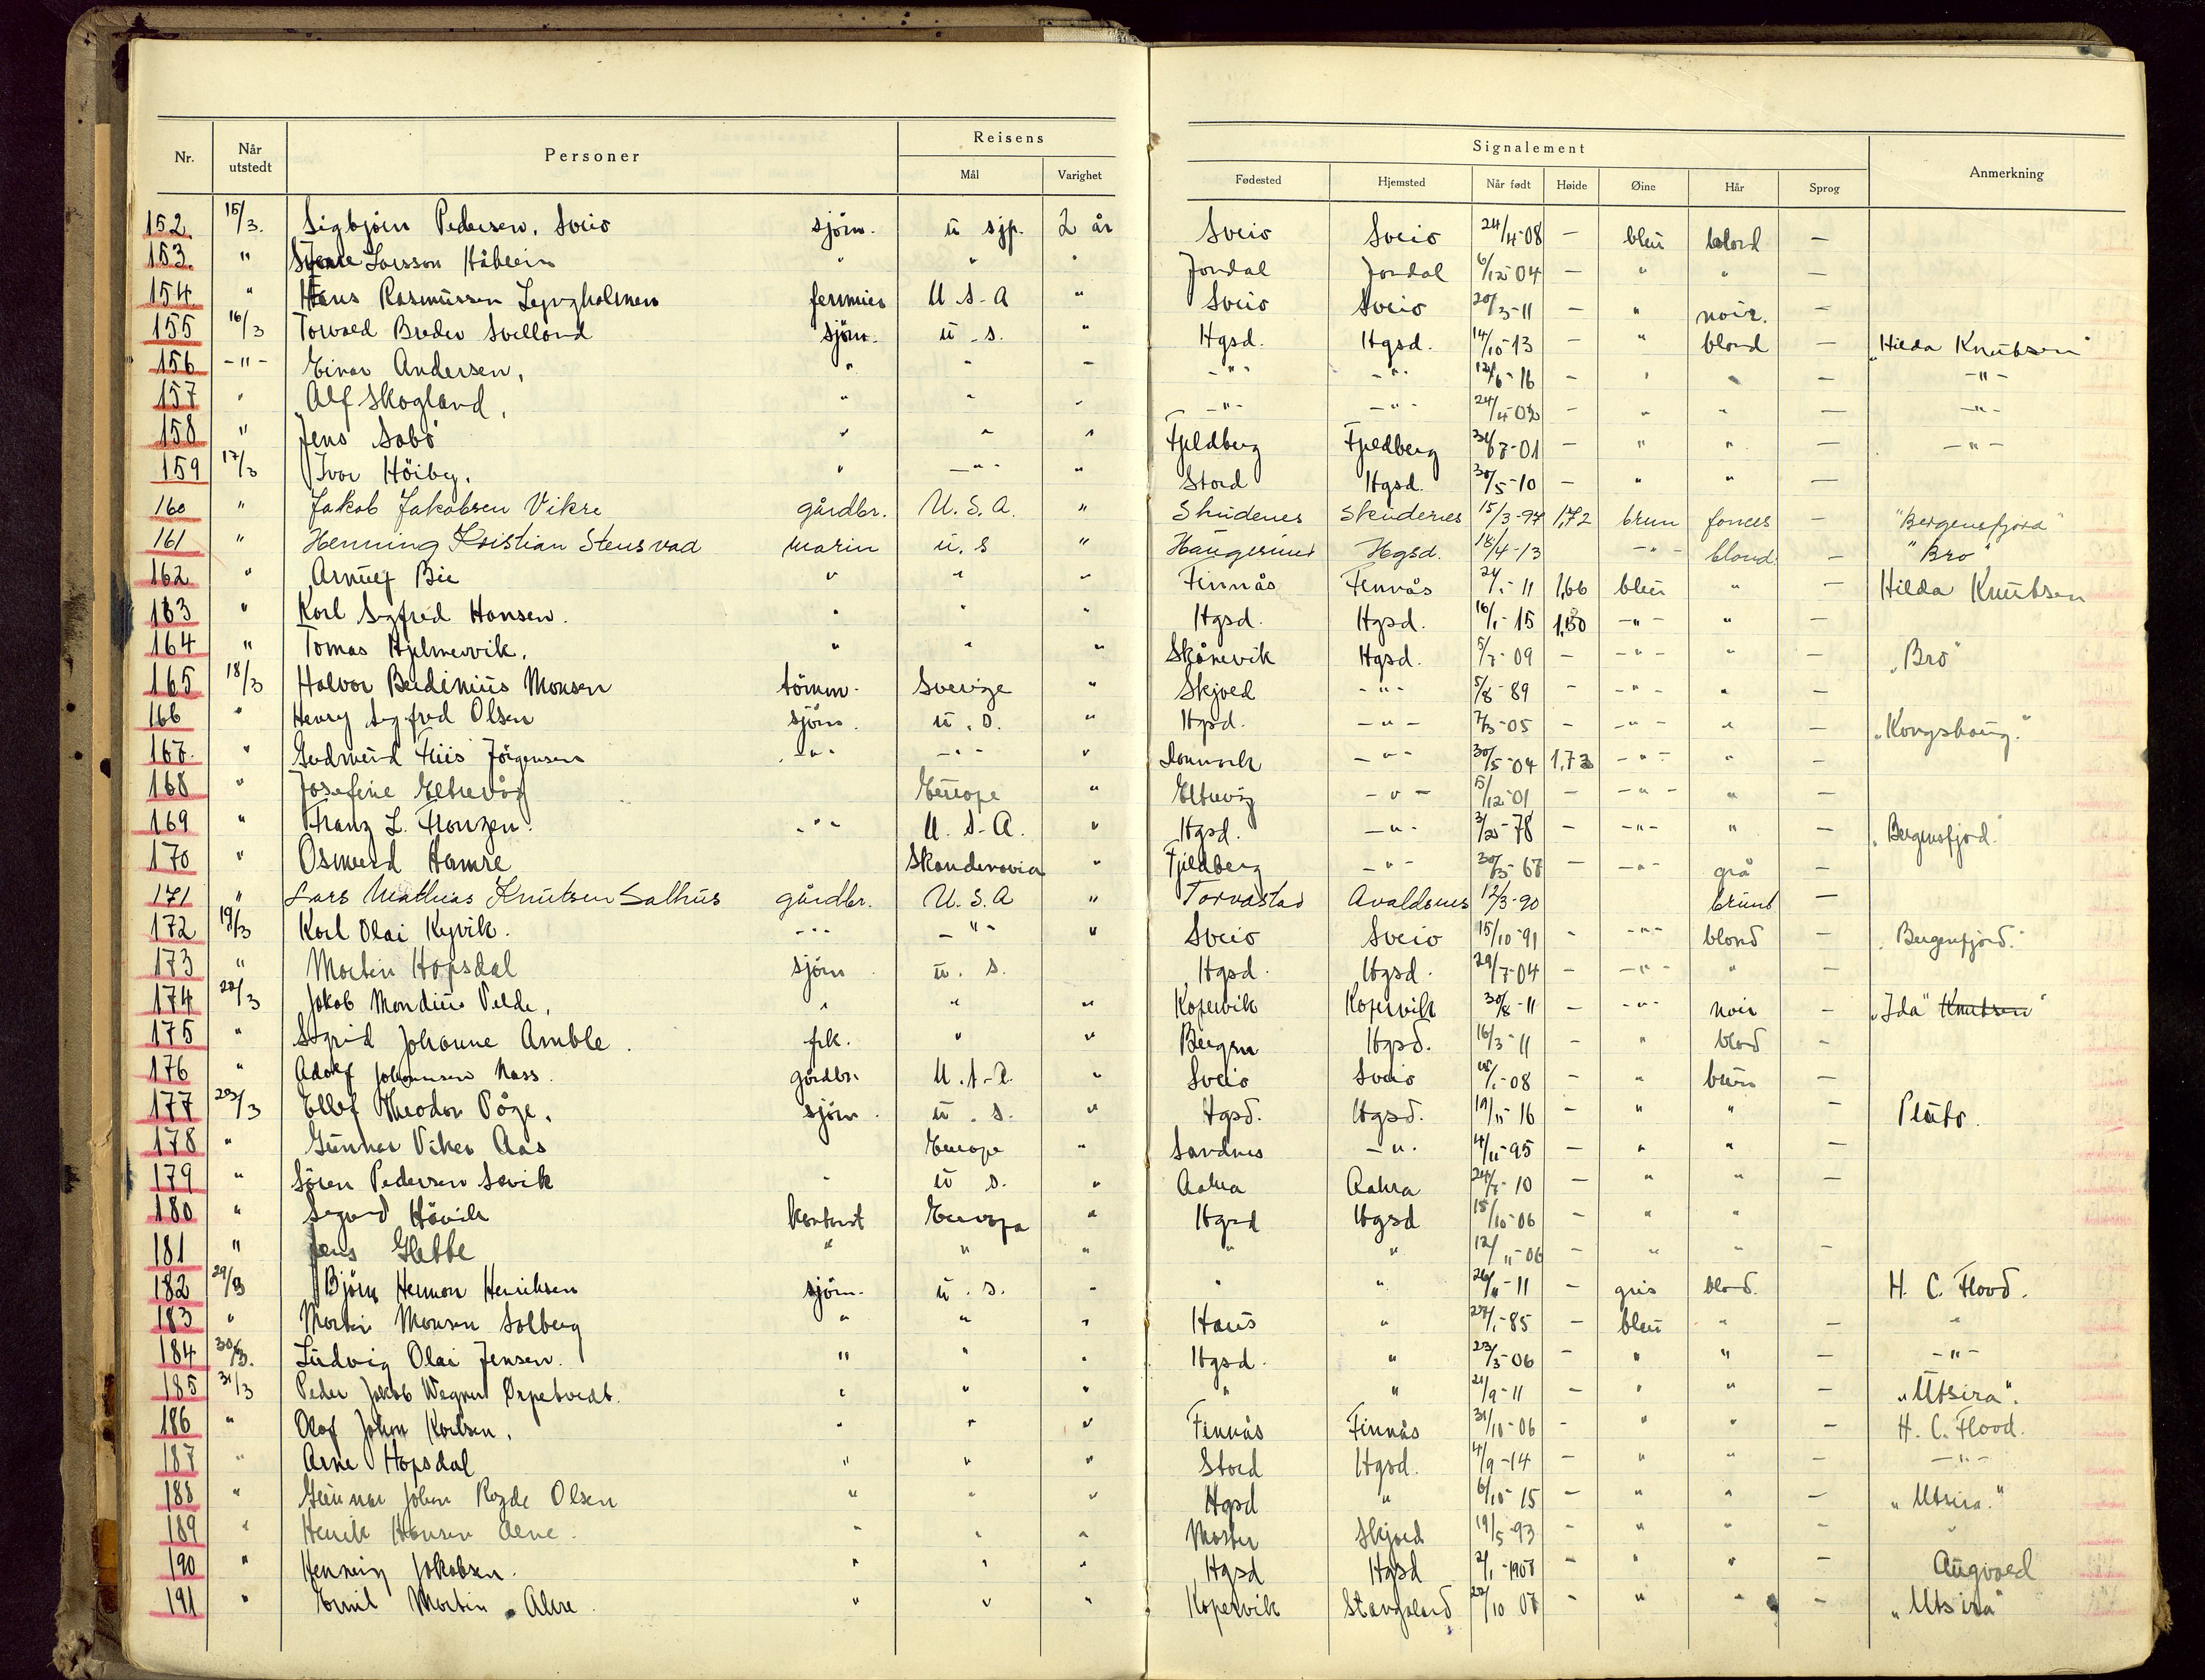 Nr. Når utstedt Personer Reisens Mål Varighet Signalement Fødested Hjemsted Når født Høide Øine Hår Sprog Anmerkning
152. 15/3. Sigbjörn Pedersen, Sveio sjöm. u sjp. 2 år Sveio Sveio 24/4-08 — bleu blond —
153. " Larsson " " " Jondal Jondal 6/12-04 — " " —
154. " Hans Rasmussen Lyngholmen fermier U.S.A " Sveio Sveio 20/3-11 — " noir. —
155 16/3 Torvald Breder Svelland sjöm. u.s. " Hgsd. Hgsd. 14/10-13 — " blond — "Hilda Knutsen"
156 -"- Einar Andersen, " " - -"- -"- 12/6-16 — " " — -"-
157 " Alf Skogland, " " " -"- -"- 24/4-02 — " " — -"-
158 " Jens Sabö " " " Fjeldberg Fjeldberg -01 — " " — -"-
159 17/3 Ivar Höiby. " -"- " Stord Hgsd. 30/5-10 — " " —
160 " Jakob Jakobsen Vikre gårdbr. U.S.A. " Skudenes Skudenes 15/3-97 1,72 brun foncés — "Bergensfjord"
161 " Henning Kristian Stensvad marin u.s " Haugesund Hgsd. 18/4-13 -"- blond. — "Bro"
162 " Arnulf Bie " " " Finnås Finnås 24/1-11 1,66 bleu " — Hilda Knutsen
163 " Karl Sigfred Hansen. " " " Hgsd. Hgsd. 16/1-15 1,50 -"- "
164 " Tomas Hjelmervik. " " " Skånevik Hgsd. 5/7-09 — -"- " — "Bro"
165 18/3 Halvor Berdinius Monsen tömm. Sverige " Skjold -"- 5/8-89 — -"- " —
166 " Henry Sigfred Olsen sjöm. u.s. " Hgsd. -"- 7/3-05 — -"- " — "Kongshaug."
167. " Gudmund Friis Jörgensen -"- -"- " -"- 30/5-04 1,73 -"- " —
168 " Josefine Eltrevåg Europe " Eltrevåg -"- 5/12-01 — -"- " —
169 " Franz L. Franzen. -"- U.S.A. " Hgsd. -"- -78 — -"- " — "Bergensfjord."
170 " Osmund Hamre Skandinavia " Fjeldberg -"- -67 — -"- grå —
171 " Lars Mathias Knutsen Salhus gårdbr. U.S.A " Torvastad Avaldsnes 12/3-90 brunt —
172 19/3 Karl Olai Kyvik. -"- -"- " Sveio Sveio 15/10-91 — -"- blond — "Bergensfjord."
173 " Martin Hopsdal sjöm u.s. Hgsd. Hgsd. 29/7-04 — -"- " —
174 22/3 Jakob Mandius Velde, " " " Kopervik Kopervik 30/8-11 — -"- noir — "Ida" Knutsen"
175 " Sigrid Johanne Amble. frk. " " Bergen Hgsd. 16/3-11 — " blond —
176 " Adolf Johannsen Næss. gårdbr. U.S.A. " Sveio Sveio /1-08 — " brun —
177 23/3 Ellef Theodor Våge. sjöm. u.s. " Hgsd. Hgsd. 19/11-16 — " " — Pluto.
178 " Gunnar Viker Aas Europe " Sandnes -"- 4/11-95 — " " —
179 " Sören Pedersen Sævik " u s. " Aakra Aakra 24/7-10 — " " —
180 " Sigurd Hövik kontorist Europa " Hgsd Hgsd 15/10-06 — " "
181 " Jens Glette " " " " " 12/11-06 — " " —
182 29/3 Björn Herman Henriksen sjöm. u.s. " " " 26/11-11 — gris blond. H. C. Flood.
183 " Martin Monsen Solberg " " " Haus " 27/1-85 — bleu " — "
184 30/3. Ludvig Olai Jensen. " " " Hgsd. " 23/3-06 — " " — -"-
185 31/3 Peder Jakob Wegner Ørpetvedt. " " " " " 21/9-11 — " " — "Utsira".
186 " Olaf Johan Karlsen. " " " Finnås Finnås 31/10-06 — " " — H. C. Flood.
187 " Arne Hopsdal " " " Stord Hgsd. 4/9-14 — " " — -"-
188 " Gunnar Johan Røgde Olsen " " " Hgsd " 6/10-15 — " " — "Utsira."
189 " Henrik Hansen Alne. " " " Moster Skjold 19/5-93 — " " — "
190 " Henning Jakobsen. " " " Hgsd Hgsd 2/1-1908 — " " — Augvald
191 " Emil Martin Akre. " " " Kopervik Stangeland 22/10 07 — " " — "Utsira"